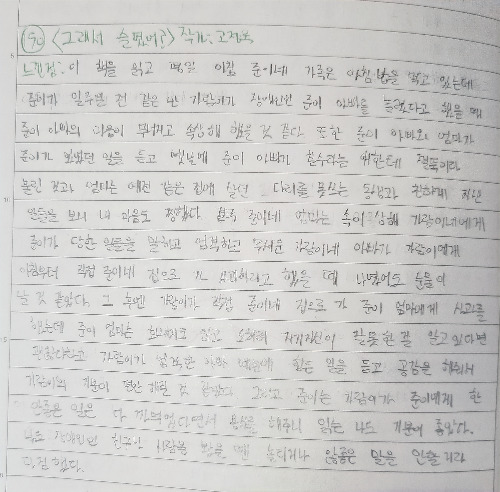 <그래서 슬펐어?> 작가: 고정욱
느낀점: 이 책을 읽고 평일 아침 준이네 가족은 아침밥을 먹고 있는데
준이가 일주일 전 같은 반 가람이가 장애인인 준이 아빠를 놀렸다고 했을 때
준이 아빠의 마음이 무너지고 속상해 했을 것 같다. 또한 준이 아빠와 엄마가
준이가 있었던 일을 듣고 옛날에 준이 아빠가 한테 절뚝이라
놀린 것과 엄마는 예전 같은 반에 살던 다리를 못쓰는 동생과 친하게 지낸
일들을 보니 내 마음도 했다. 준이네 엄마는 속이 상해 가람이네에게
준이가 당한 일들을 말하고 엄격하고 무서운 가람이네 아빠가 가람이에게
직접 준이네 집으로 가 사과하라고 했을 때 나였어도 눈물이
날 것 같았다. 그 후엔 가람이가 직접 준이네 집으로 가 준이 엄마에게 사과를
했는데 준이 엄마는 자기자신이 잘못한 걸 알고 있다면
괜찮다하고 가람이가 엄격한 아빠 때문에 힘든 일을 듣고 공감을 해줘서
가람이의 기분이 편안해질 것 같았다. 그리고 준이는 가람이가 준이에게 한
일은 다 용서를 해주니 읽는 나도 기분이 좋았다.
나는 장애인인 친구나 사람을 봤을 때 놀리거나 않좋은 말을 안할거라
다짐했다.